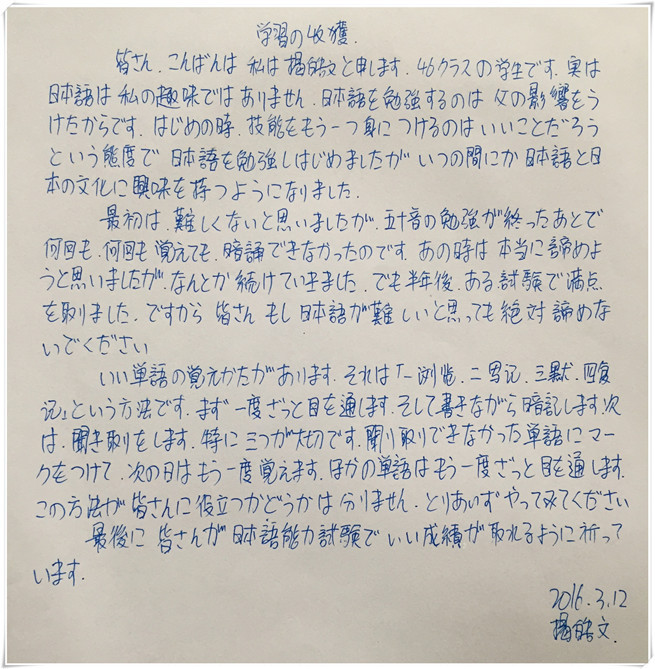 学習の收獲.
皆さん.こんばんは 私は楊皓文と申します.46クラスの学生です.実は
日本語は私の趣味ではありません.日本語を勉強するのは父の影響をう
けたからです.はじめの時.技能をもう一つ身につけるのはいいことだろう
という態度で日本語を勉強しはじめましたがいつの間にか日本語と日
本の文化に興味を持つようになりました.
最初は.難しくないと思いましたが.五十音の勉強が終ったあとで
何回も.何回も覚えても.暗誦できなかったのです.あの時は本当に諦めよ
うと思いましたが.なんとか続けていきました.でも半年後.ある試験で満点
を取りました.ですから皆さんもし日本語が難しいと思っても絶対諦めな
いでください
いい単語の覚えかたがあります.それは「一浏览.二写记.三默.四复
记」という方法です.まず一度ざっと目を通します.そして書きながら暗記します.次
は.聞き取りをします.特に三つが大切です.聞り取りできなかった単語にマー
クをつけて.次の日はもう一度覚えます.ほかの単語はもう一度ざっと目を通します.
この方法が皆さんに役立つかどうかは分りません.とりあいずやってみてください
最後に 皆さんが日本語能力試験でいい成績が取れるように祈って
います.
2016.3.12
楊皓文.